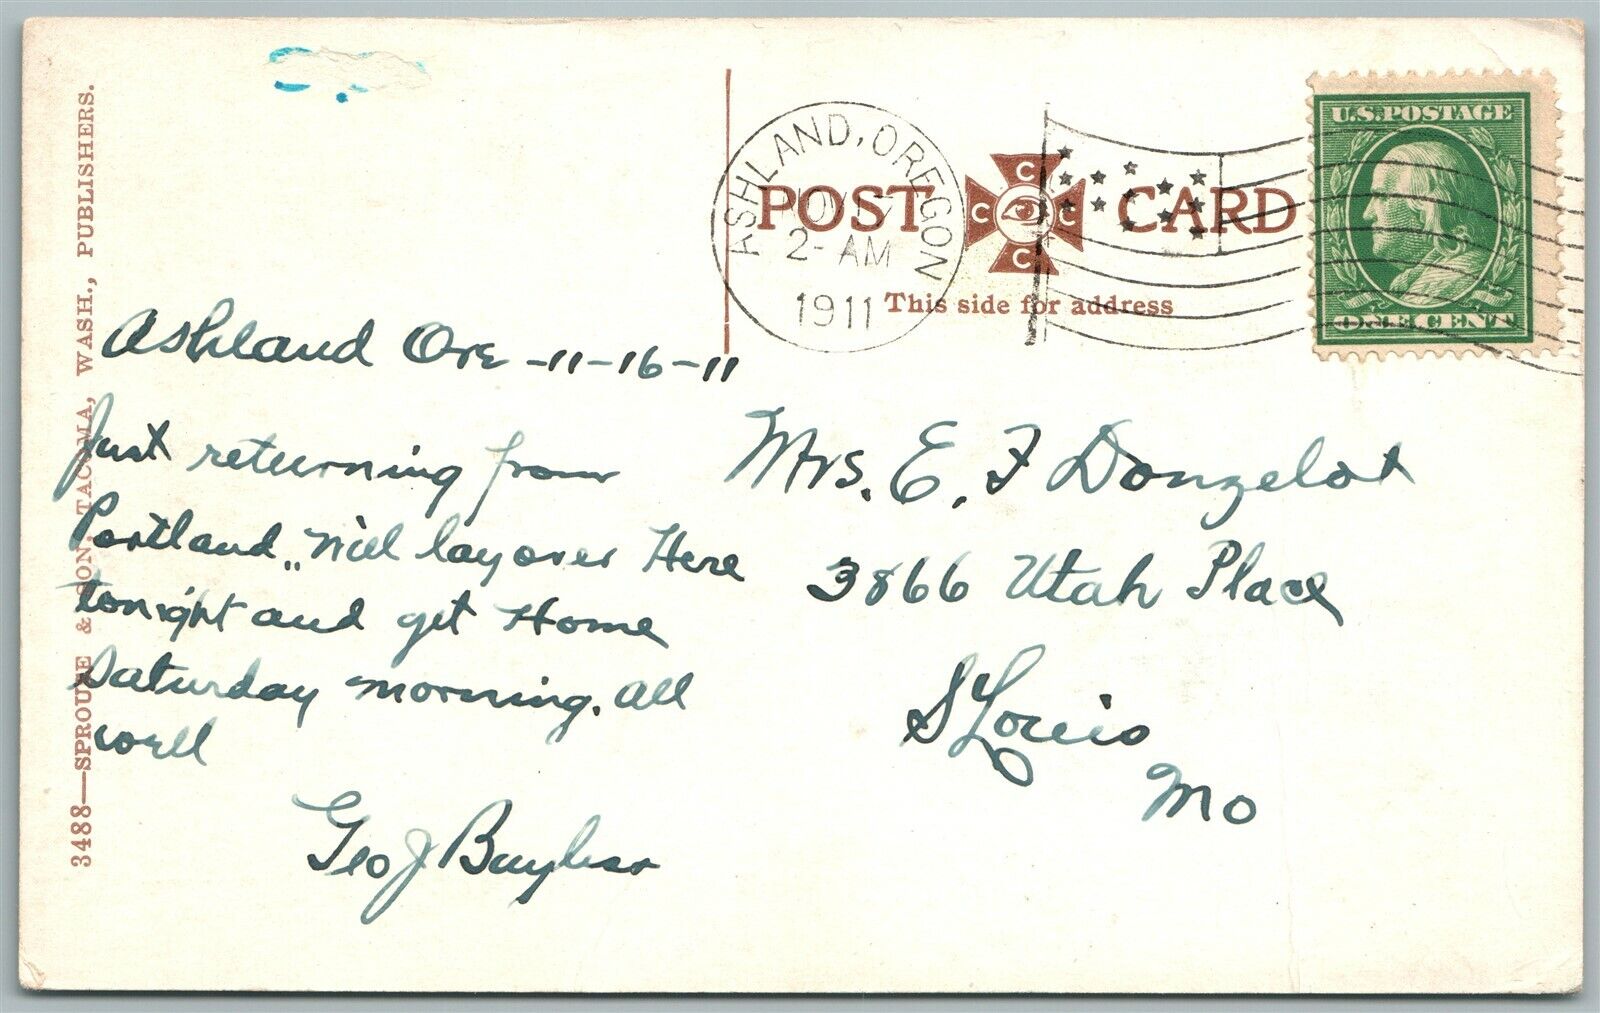 3488—SPROUE & SON, TACOMA, WASH., PUBLISHERS.
ASHLAND, OREGON
NOV 17
2- AM
1911
POST CARD
C C C C
This side for address
U.S. POSTAGE
ONE CENT
Ashland Ore -11-16-11
Just returning from
Portland,, will lay over Here
tonight and get Home
Saturday morning. all
well
Geo J Bayless
Mrs. E. F Donzelot
3866 Utah Place
St Louis
Mo